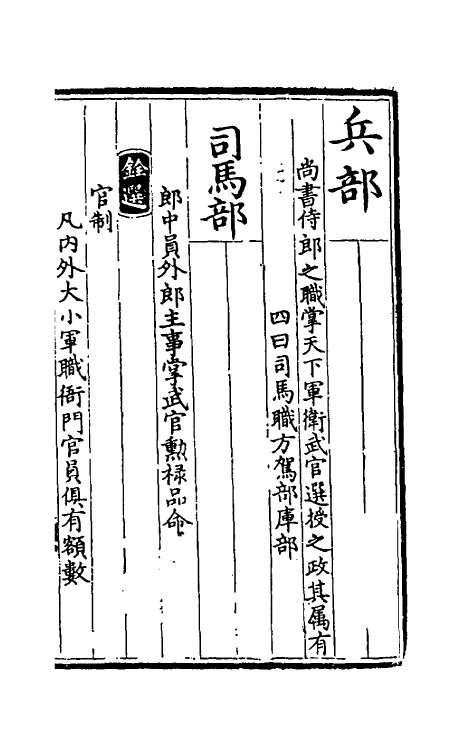 兵部
尚書侍郎之職掌天下軍衛武官選授之政其属有
四曰司馬職方駕部庫部
司馬部
郎中員外郎主事掌武官勲禄品命
銓選
官制
凡内外大小軍職衙門官員俱有額數